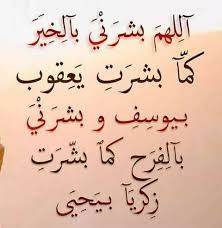 اَللهمَ بشرَنْيَ بآلِخِيَر
كمّآ بشرَتِ يَعقوب
بيوسِفِ و بشرَنْيَ
بآلفِرَح كمآ بشّرَت
زِكرَيآ بيَحيَى